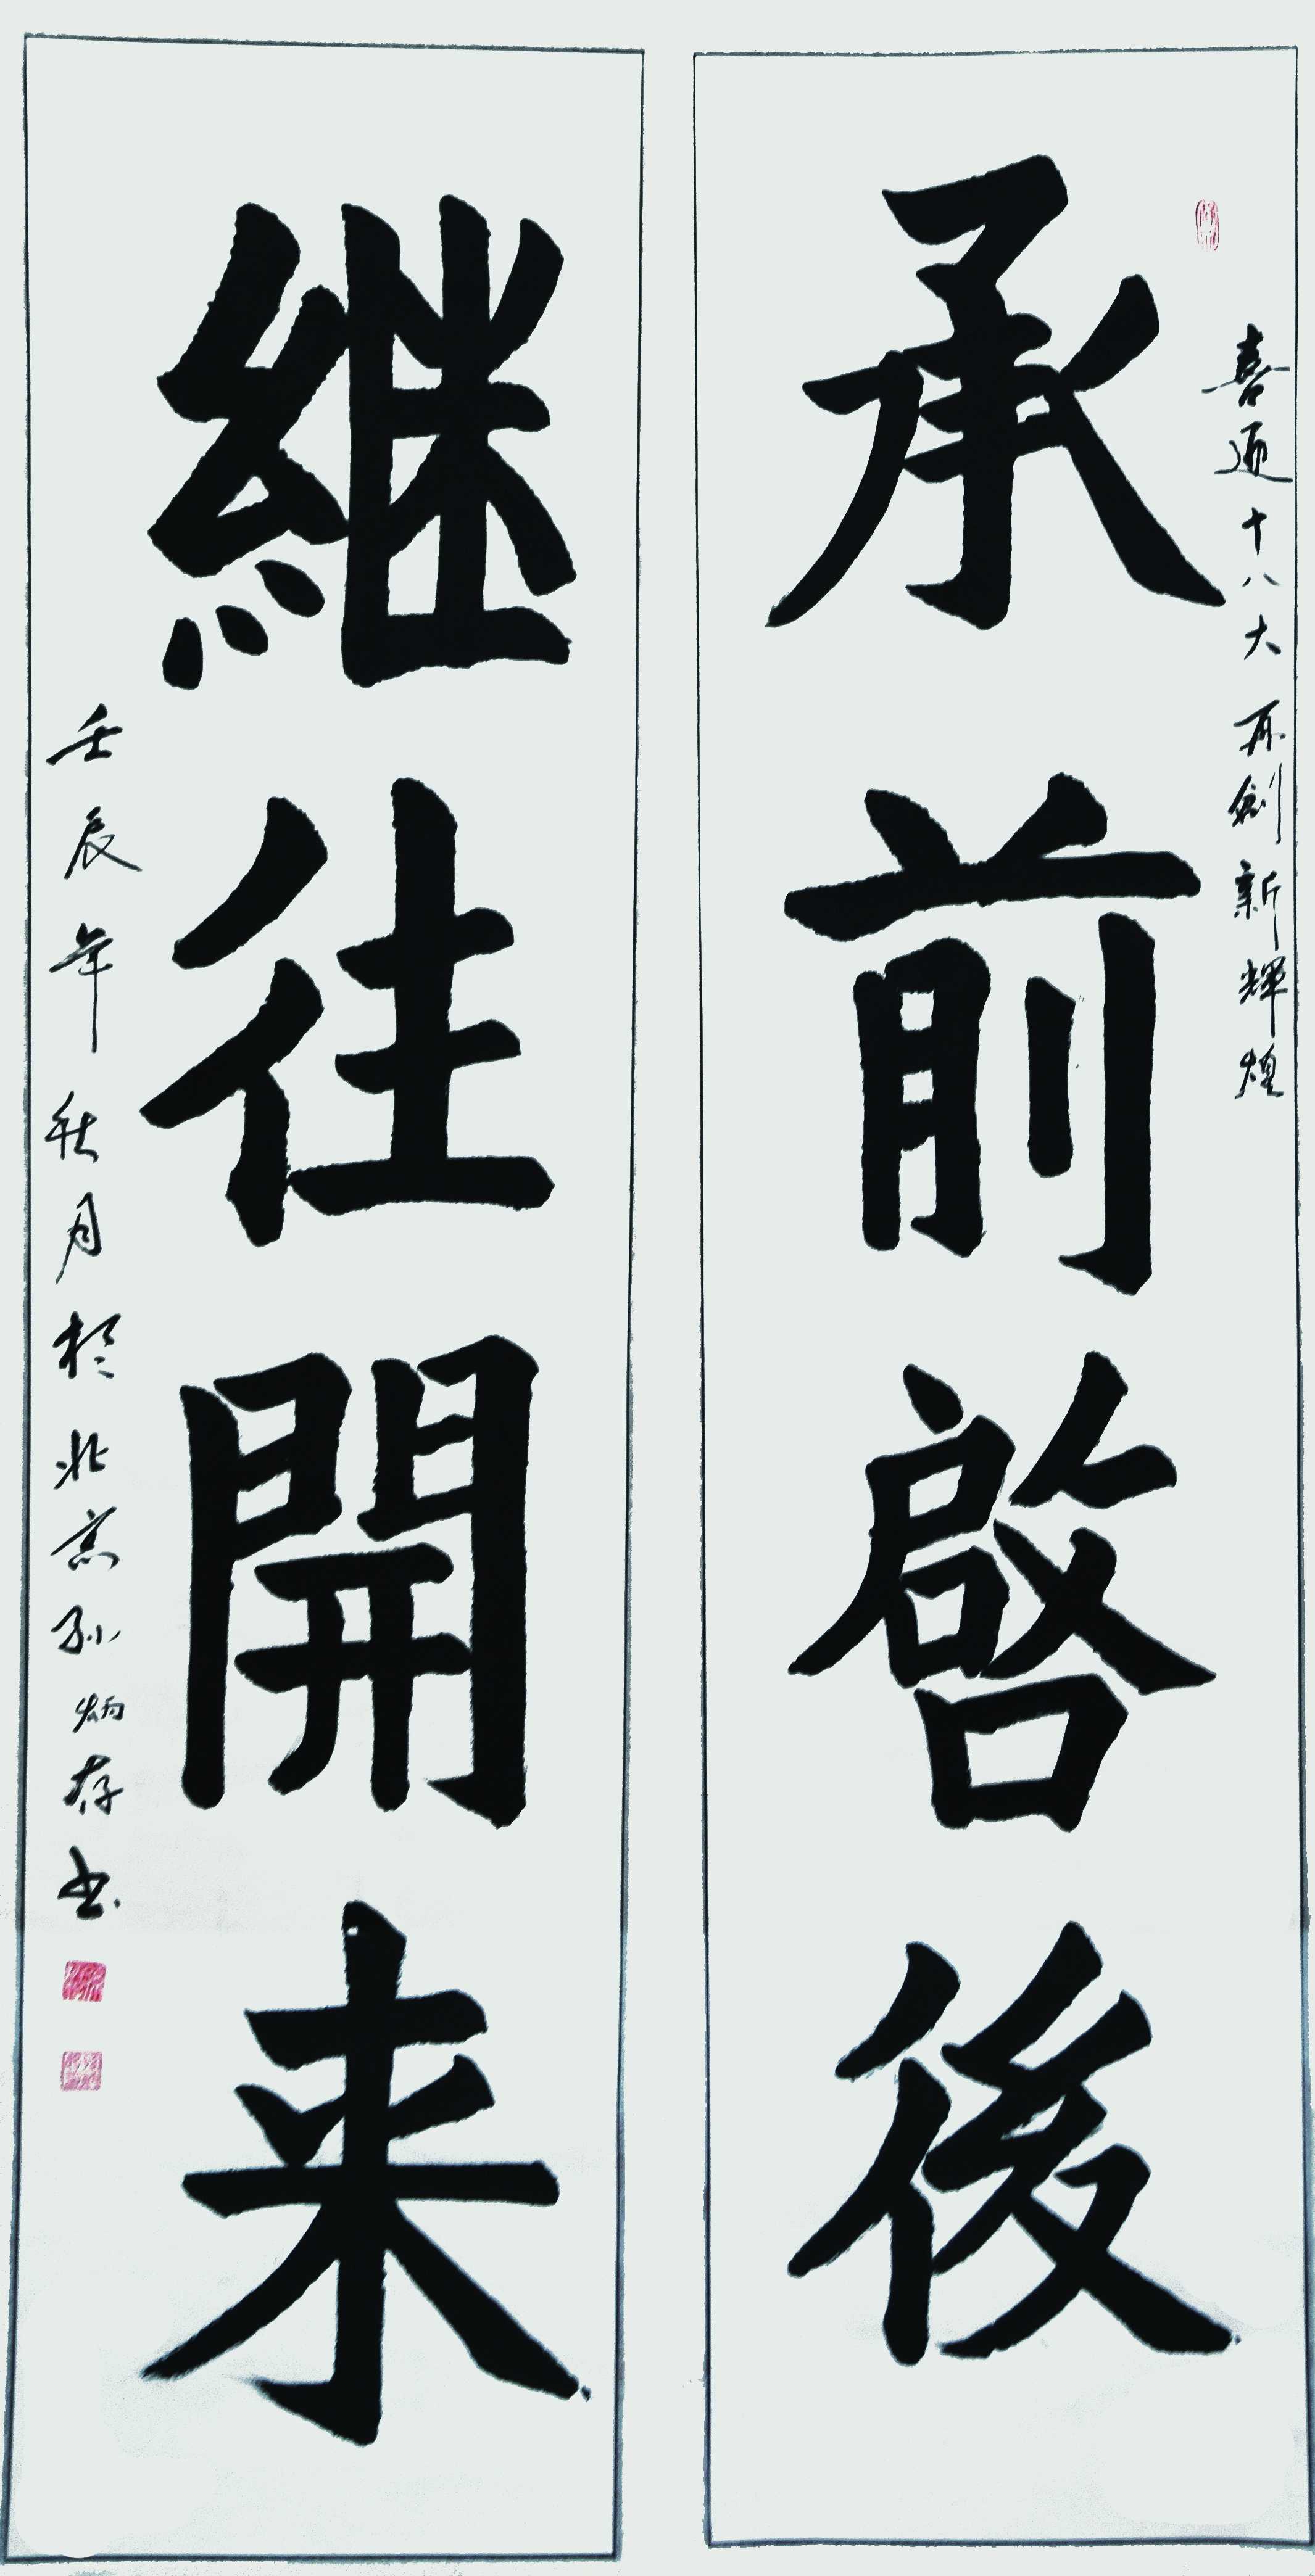 喜迎十八大再創新輝煌
承前啓後
継往開来
壬辰年秋月於北京孙炳存书